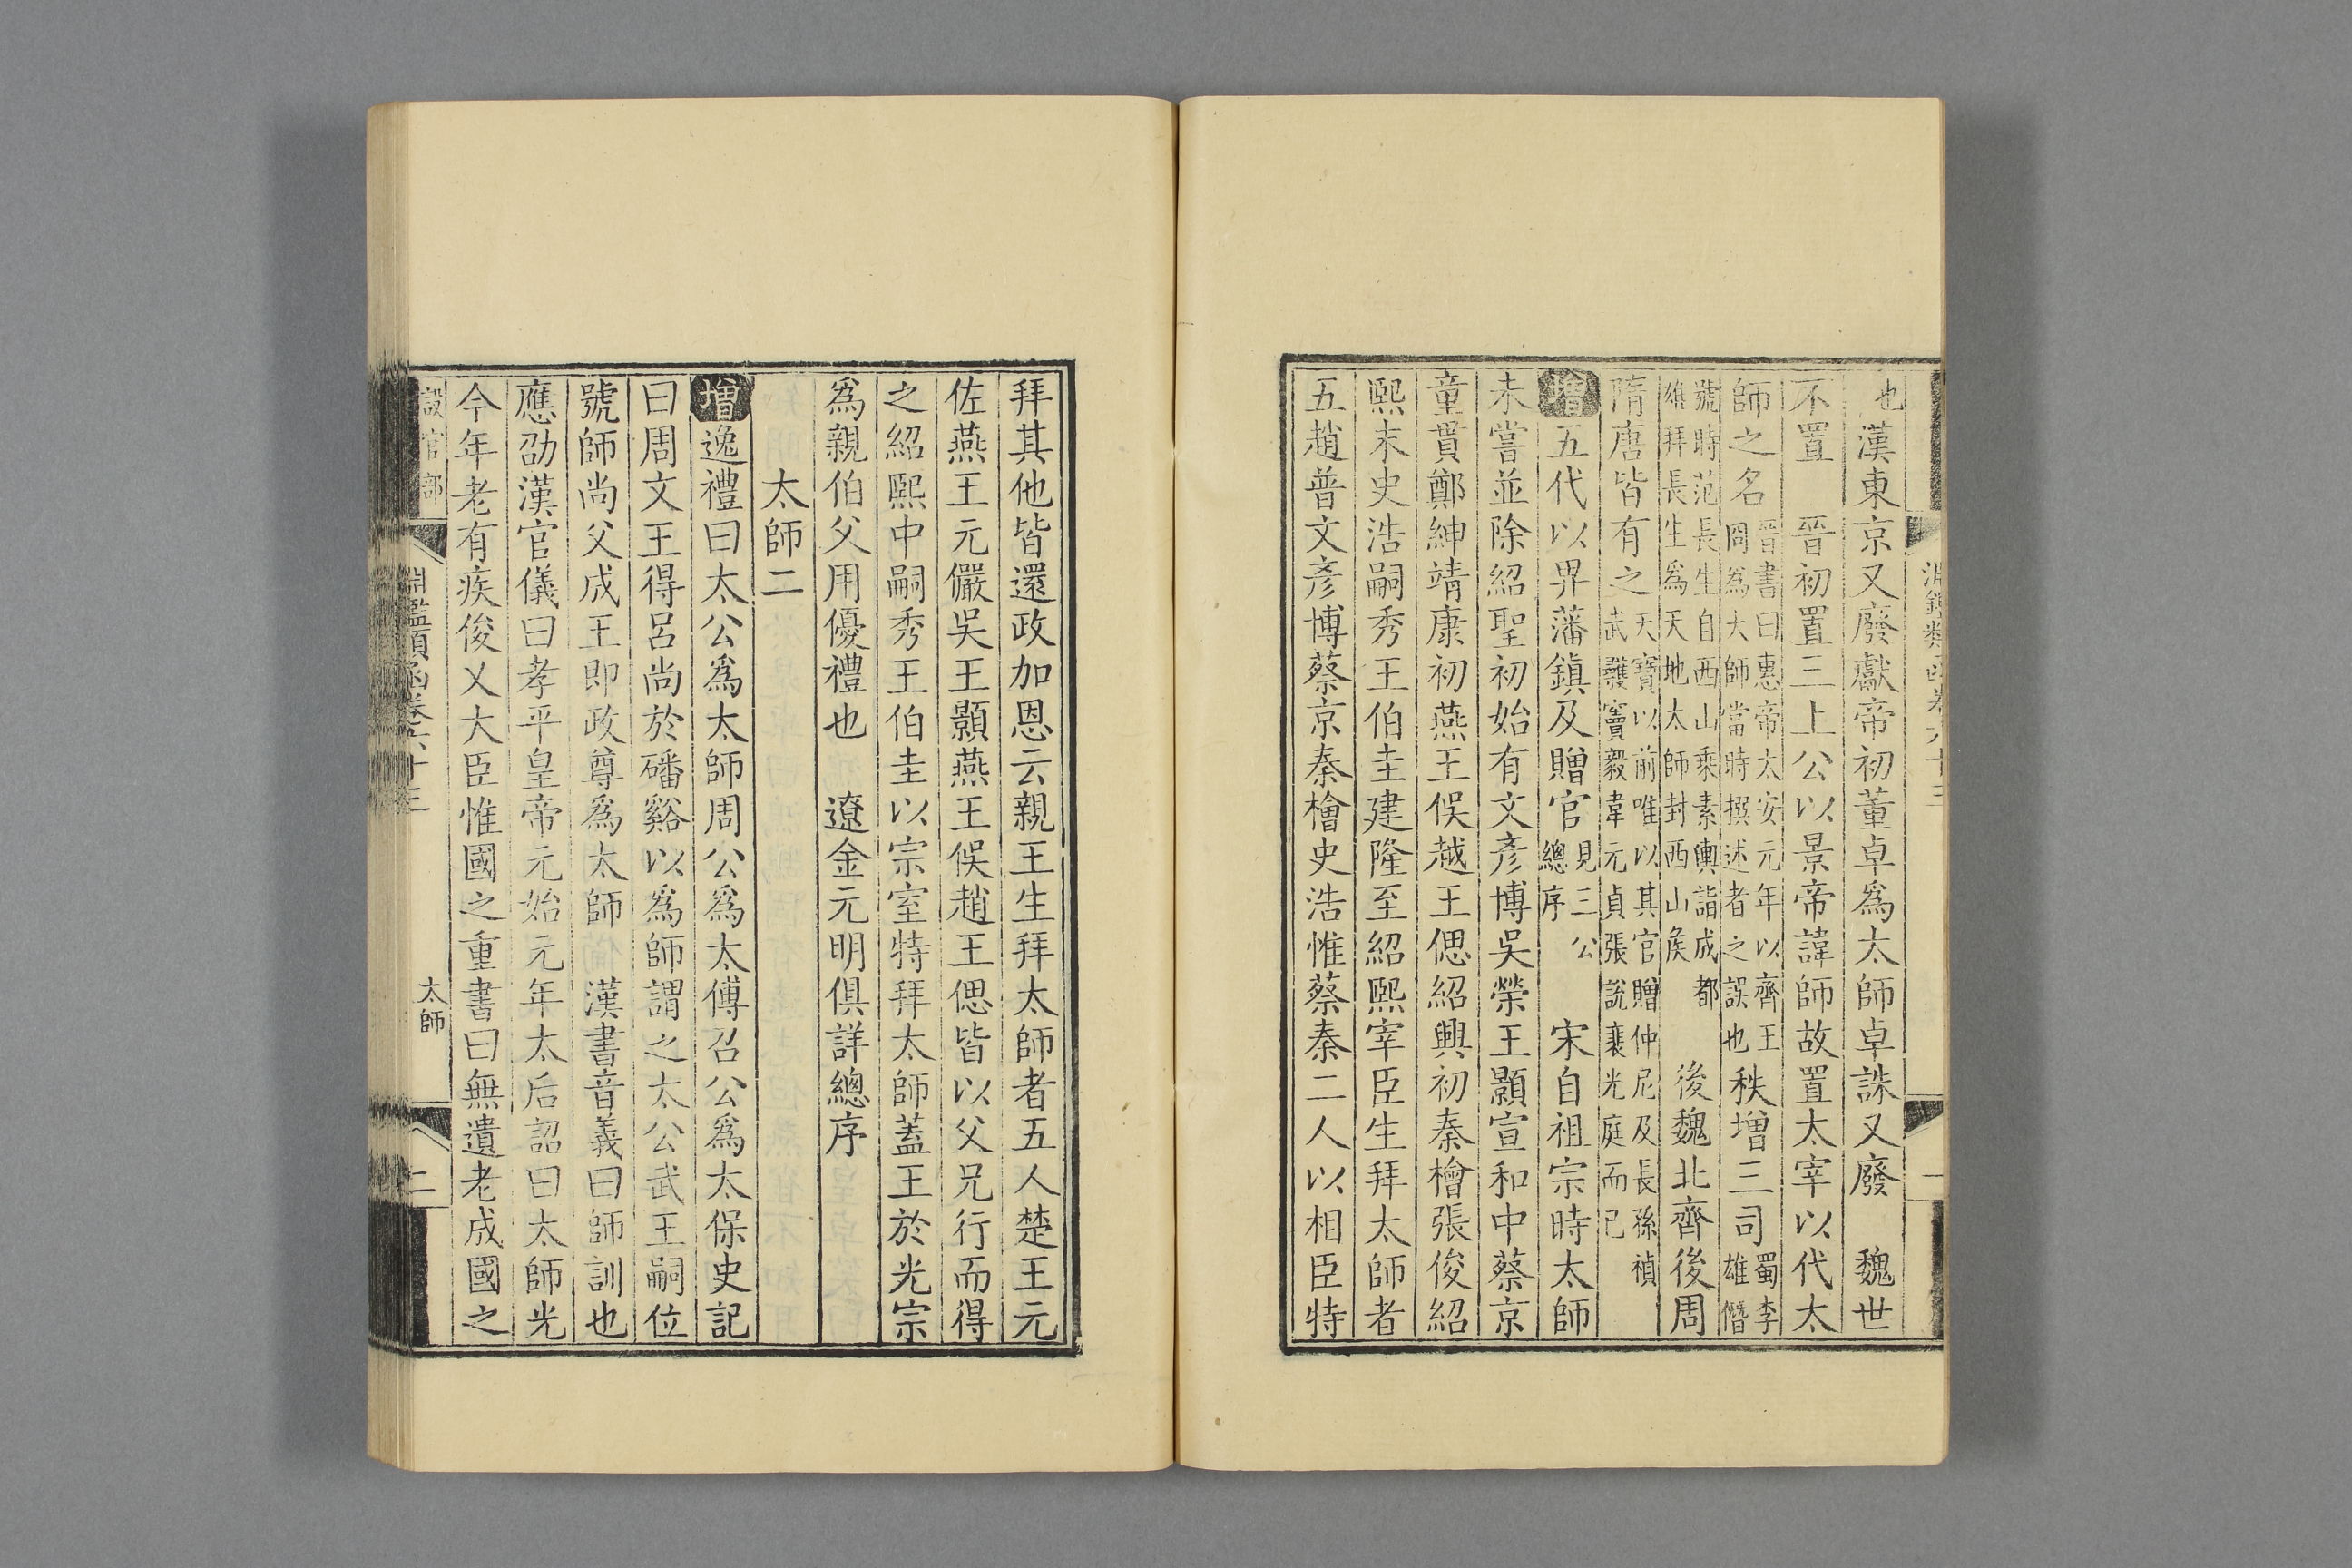 淵鑑類函卷六十三
也　漢東京又廢獻帝初董卓爲太師卓誅又廢　魏世
不置　晉初置三上公以景帝諱師故置太宰以代太
師之名晉書曰惠帝太安元年以齊王冏爲太師當時撰述者之誤也秩增三司蜀李雄僭
號時范長生自西山乘素輿詣成都雄拜長生爲天地太師封西山侯　後魏北齊後周
隋唐皆有之天寶以前唯以其官贈仲尼及長孫禎武䕶竇毅韋元貞張說裴光庭而已
增五代以畀藩鎮及贈官見三公總序　宋自祖宗時太師
未嘗並除紹聖初始有文彥博吳榮王顥宣和中蔡京
童貫鄭紳靖康初燕王俁越王偲紹興初秦檜張俊紹
熙末史浩嗣秀王伯圭建隆至紹熙宰臣生拜太師者
五趙普文彥博蔡京秦檜史浩惟蔡秦二人以相臣特
拜其他皆還政加恩云親王生拜太師者五人楚王元
佐燕王元儼吳王顥燕王俁趙王偲皆以父兄行而得
之紹熙中嗣秀王伯圭以宗室特拜太師蓋王於光宗
爲親伯父用優禮也　遼金元明俱詳總序
太師二
增逸禮曰太公爲太師周公爲太傅召公爲太保史記
曰周文王得呂尚於磻谿以爲師謂之太公武王嗣位
號師尚父成王即政尊爲太師　漢書音義曰師訓也
應劭漢官儀曰孝平皇帝元始元年太后詔曰太師光
今年老有疾俊乂大臣惟國之重書曰無遺老成國之
設官部　淵鑑類函卷六十三　太師　二